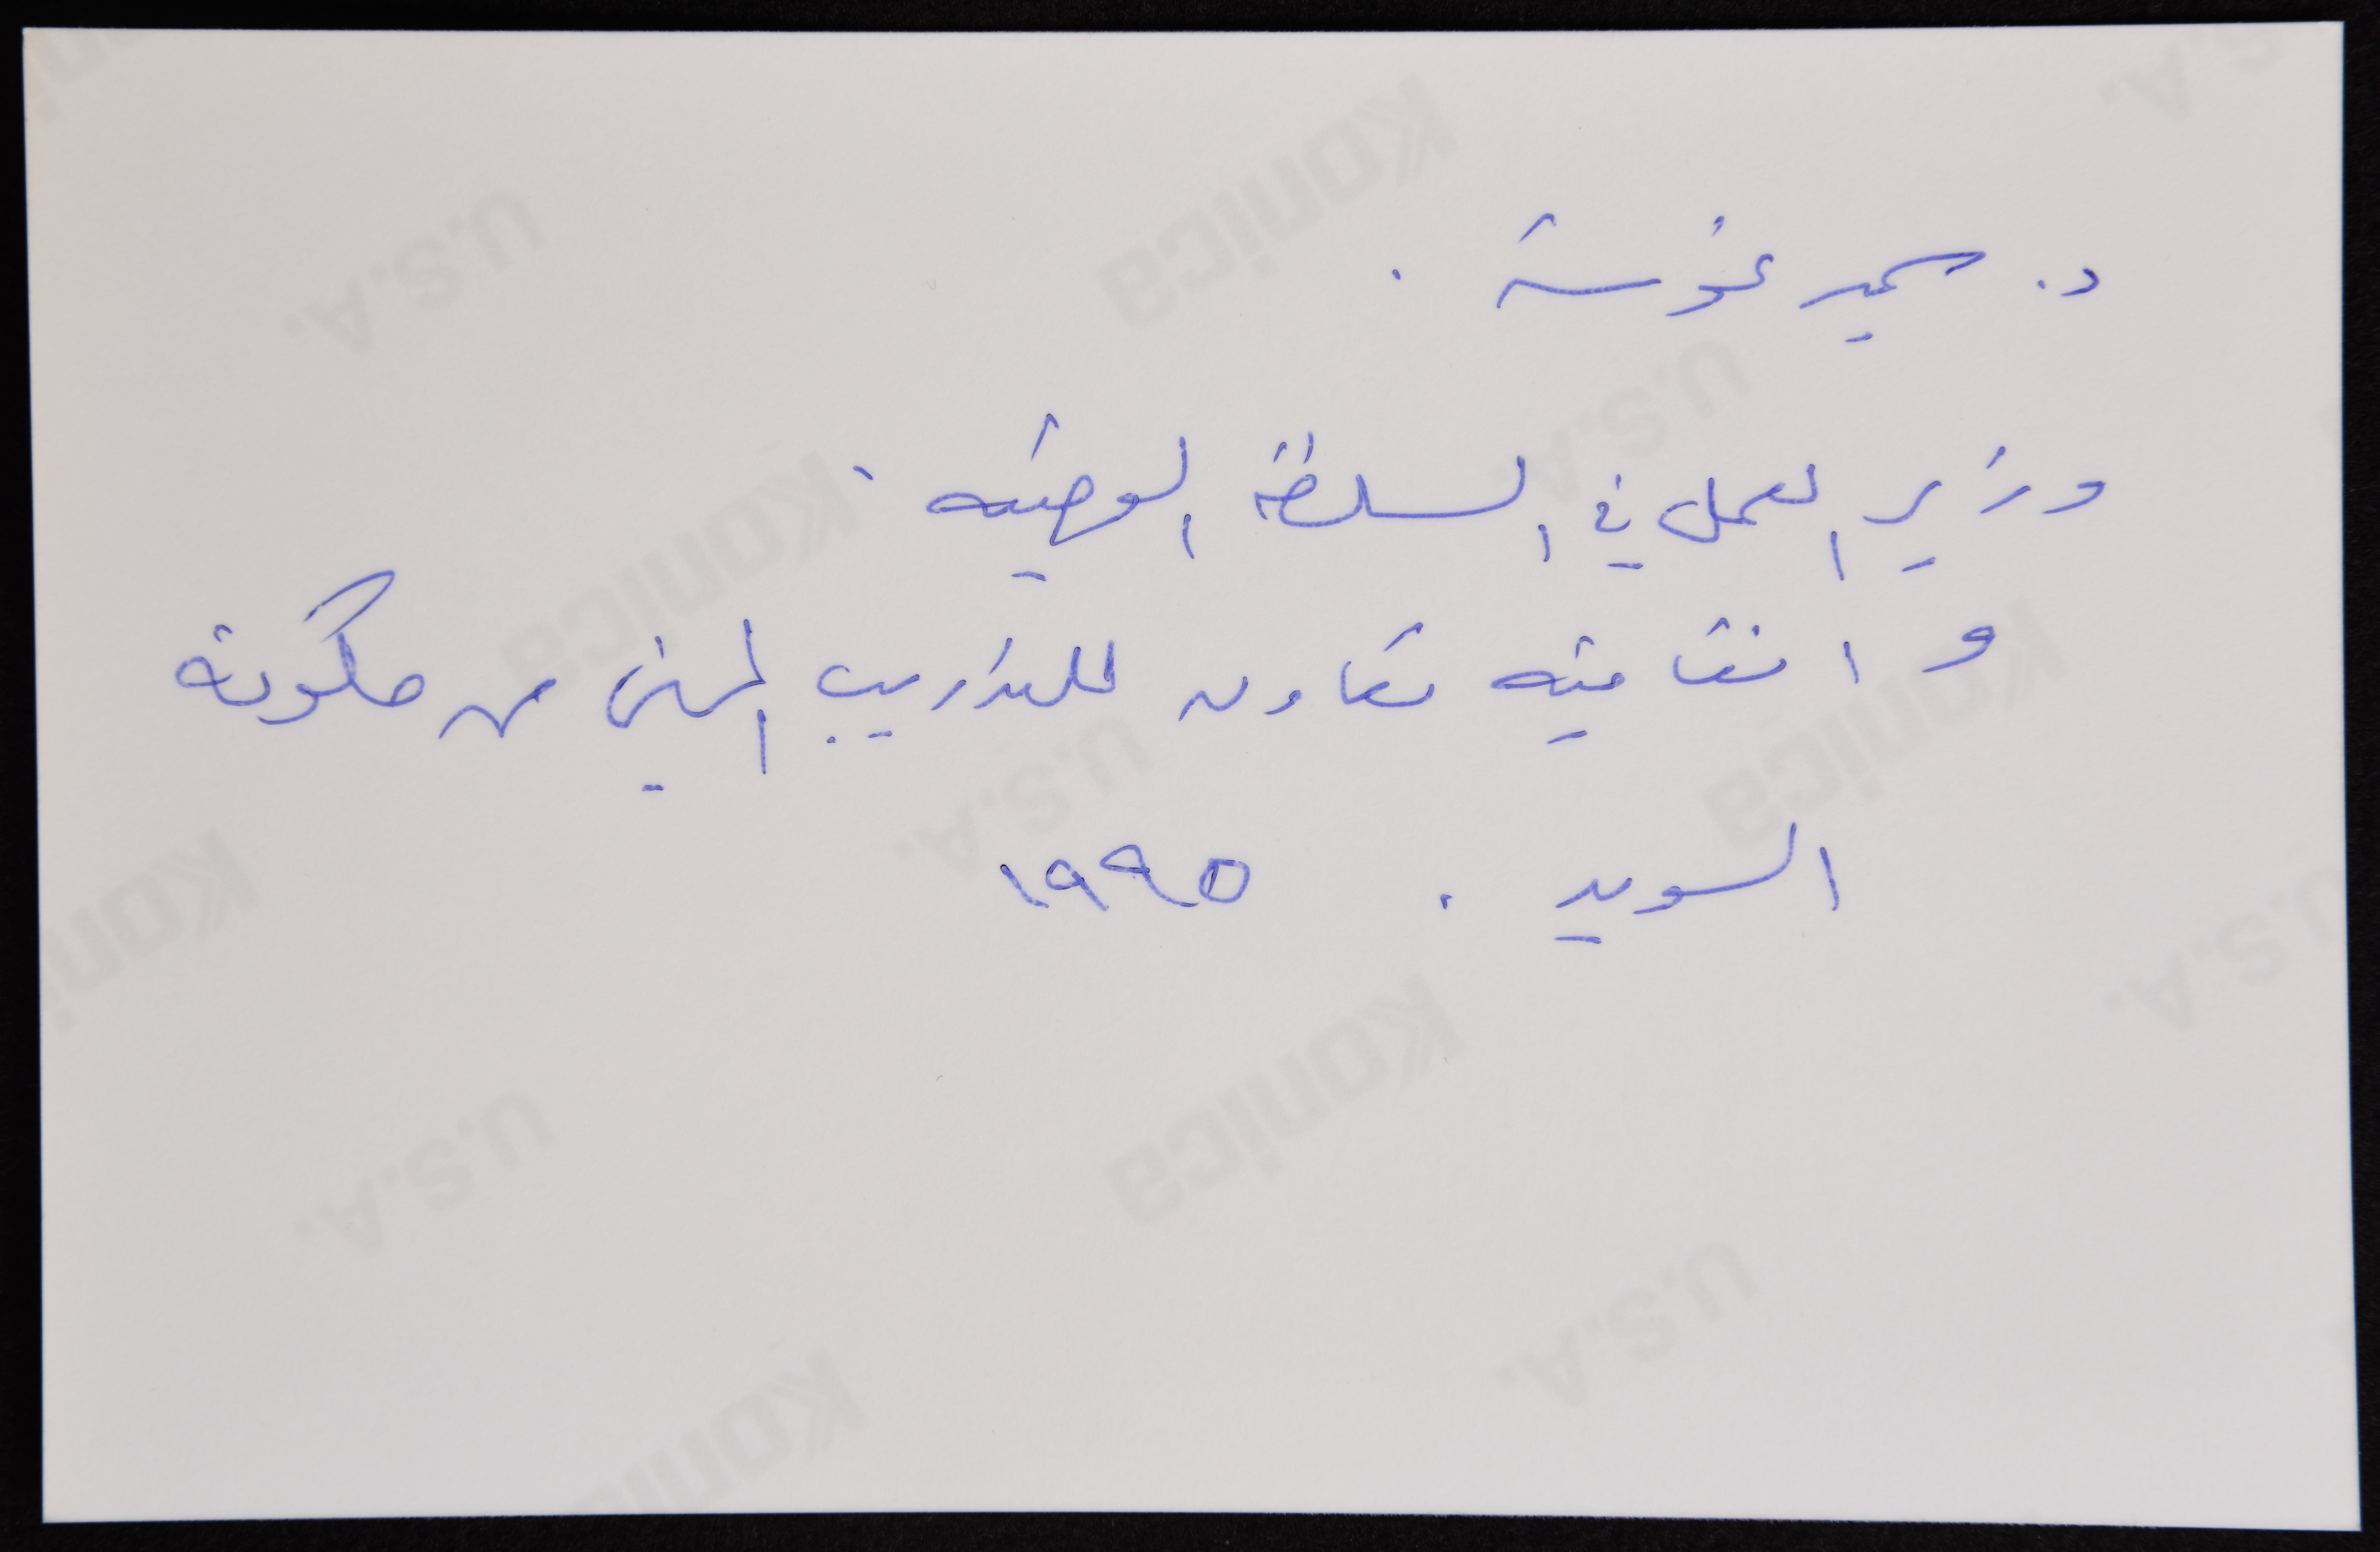 د. سمير غوشة .
وزير العمل في السلطة الوطنية .
و اتفاقية تعاون للتدريب المهني مع حكومة
السويد . ١٩٩٥
Konica
U.S.A.